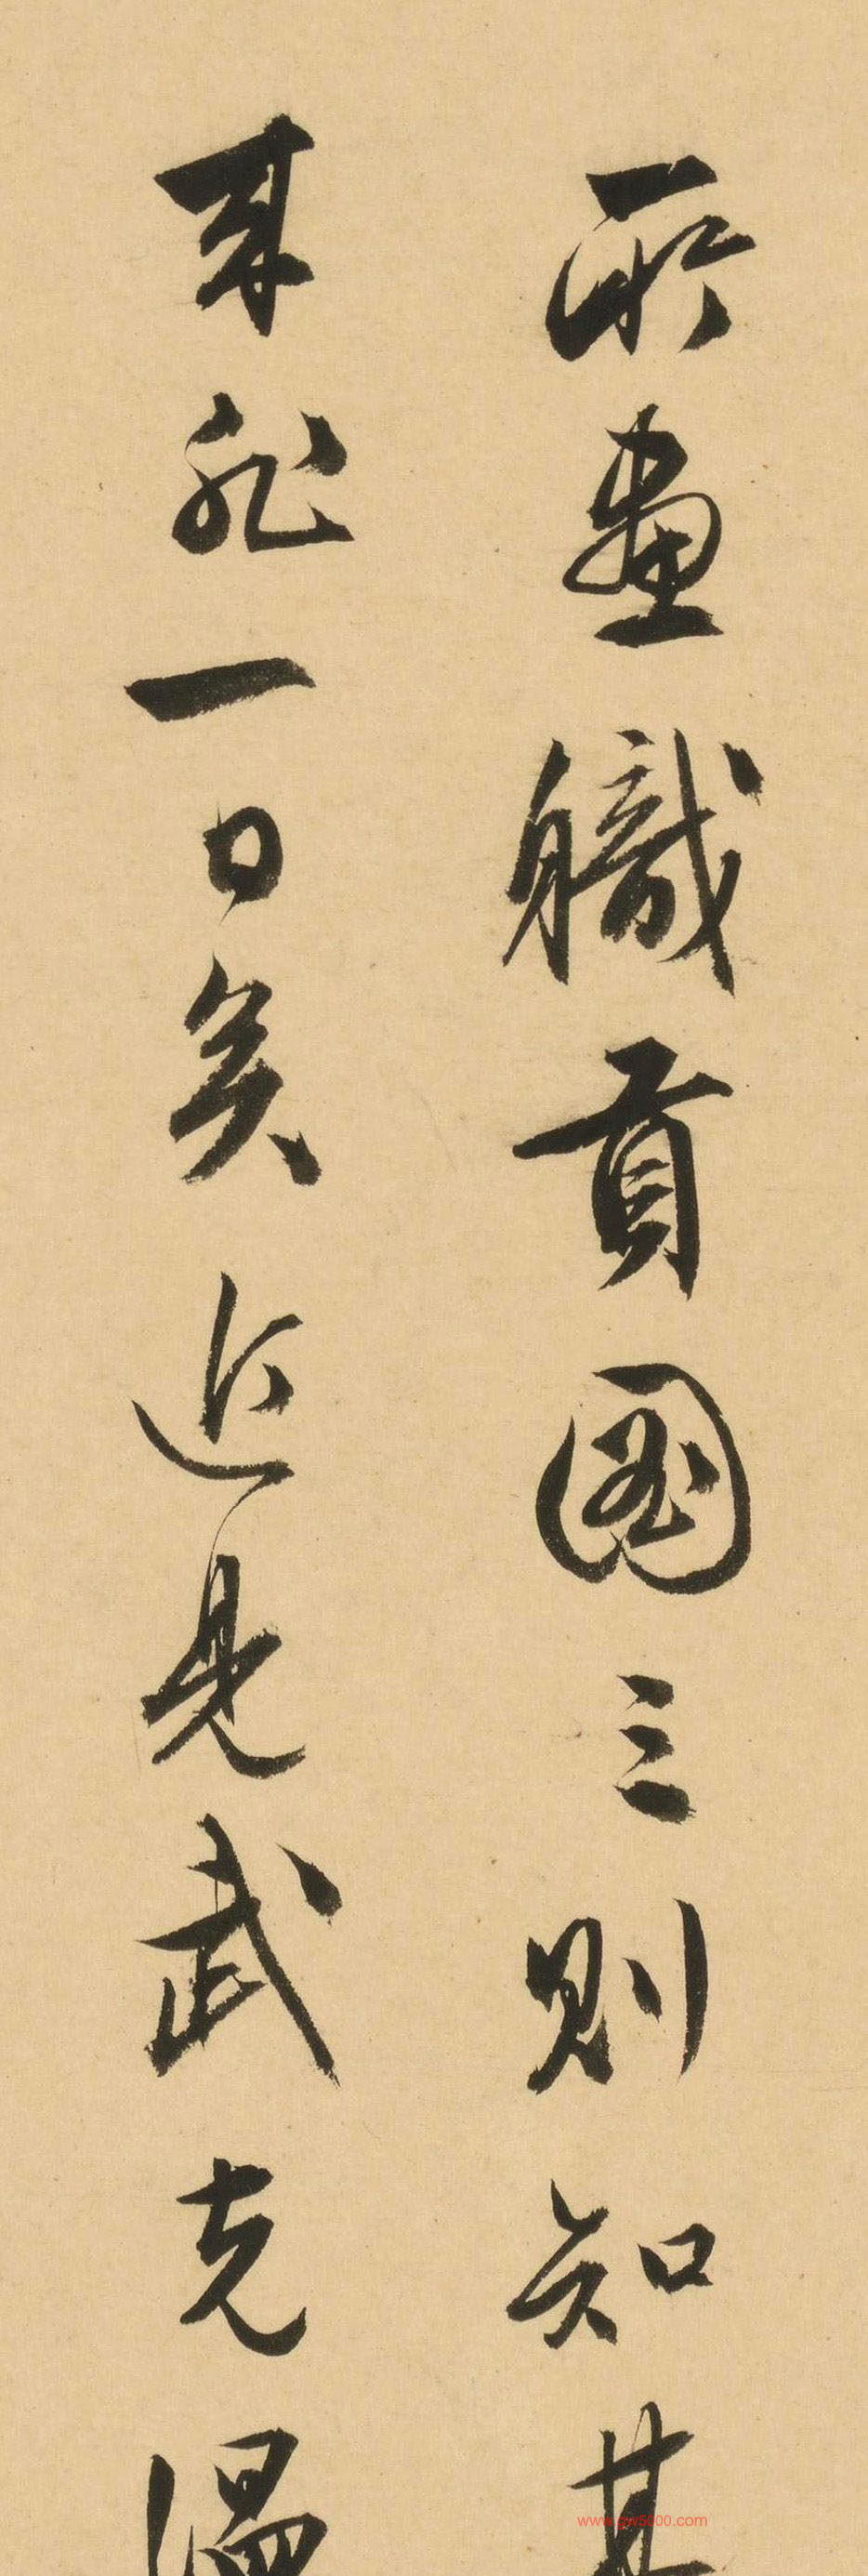 所畫職貢圖三則知其
來非一日矣近見武克溫
www.gw5000.com